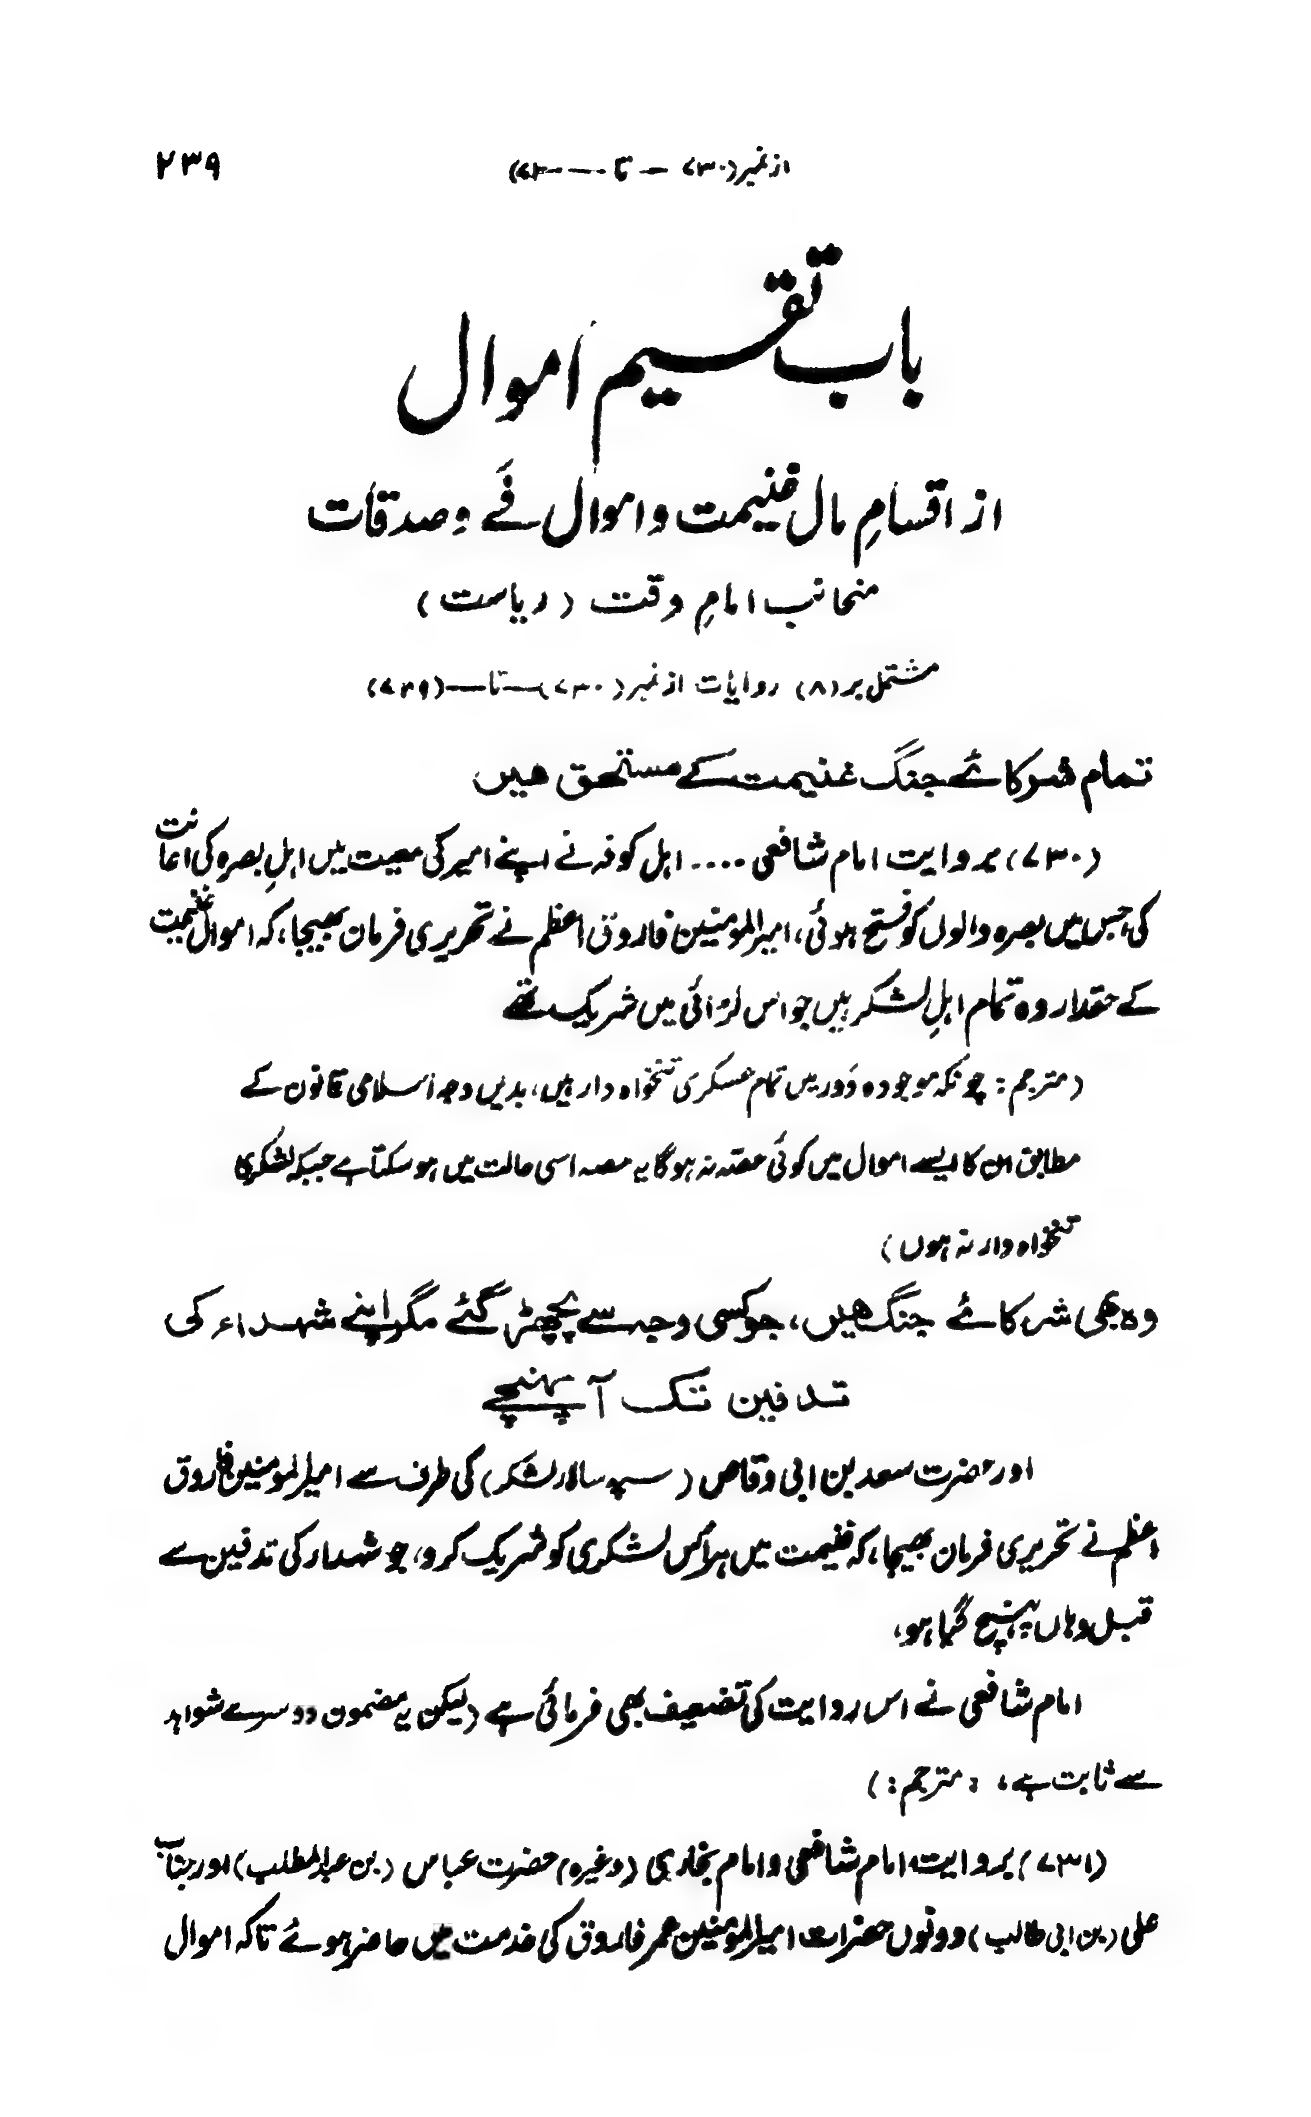 ۲۳۹
از نمبر (۷۳۰ — تا ---
باب تقسیم اموال
از اقسامِ مال غنیمت و اموال فَے و صدقات
منجانب امامِ وقت (ریاست)
مشتمل بر (۸) روایات از نمبر (۷۳۰)—تا—(۷۳۹)
تمام شرکائے جنگ غنیمت کے مستحق ہیں
(۷۳۰) بروایت امام شافعی .... اہل کوفہ نے اپنے امیر کی معیت میں اہلِ بصرہ کی اعانت
کی جس میں بصرہ والوں کو فتح ہوئی، امیر المومنین فاروق اعظم نے تحریری فرمان بھیجا، کہ اموال غنیمت
کے حقدار وہ تمام اہلِ لشکر ہیں جو اس لڑائی میں شریک تھے
(مترجم: چونکہ موجودہ دَور میں تمام عسکری تنخواہ دار ہیں، بدیں وجہ اسلامی قانون کے
مطابق ان کا ایسے اموال میں کوئی حصّہ نہ ہوگا یہ حصہ اسی حالت میں ہو سکتا ہے جبکہ لشکری
تنخواہ دار نہ ہوں)
وہ بھی شرکائے جنگ ہیں، جو کسی وجہ سے بچھڑ گئے مگر اپنے شہداء کی
تدفین تک آ پہنچے
اور حضرت سعد بن ابی وقاص (سپہ سالار لشکر) کی طرف سے امیر المومنین فاروق
اعظم نے تحریری فرمان بھیجا، کہ غنیمت میں ہر اُس لشکری کو شریک کرو، جو شہداء کی تدفین سے
قبل وہاں پہنچ گیا ہو،
امام شافعی نے اس روایت کی تضعیف بھی فرمائی ہے (لیکن یہ مضمون دوسرے شواہد
سے ثابت ہے، : مترجم:)
(۷۳۱) بروایت امام شافعی و امام بخاری (وغیرہ) حضرت عباس (بن عبد المطلب) اور جناب
علی (بن ابی طالب) دونوں حضرات امیر المومنین عمر فاروق کی خدمت میں حاضر ہوئے تاکہ اموال